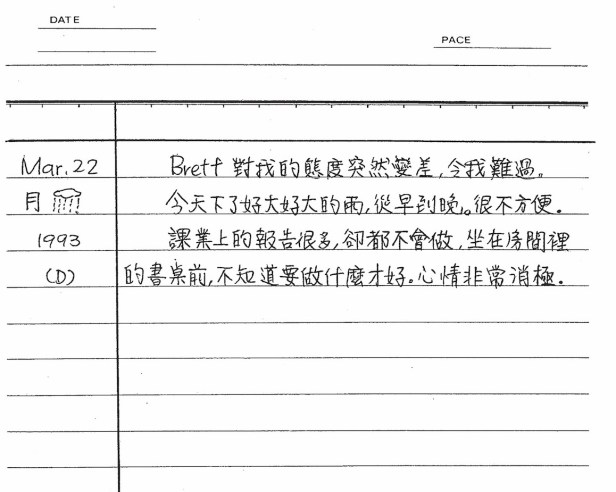 DATE
PACE
Mar. 22 Brett 對我的態度突然變差,令我難過。
月 今天下了好大好大的雨,從早到晚。很不方便.
1993 課業上的報告很多,卻都不會做,坐在房間裡
(D) 的書桌前,不知道要做什麼才好。心情非常消極.